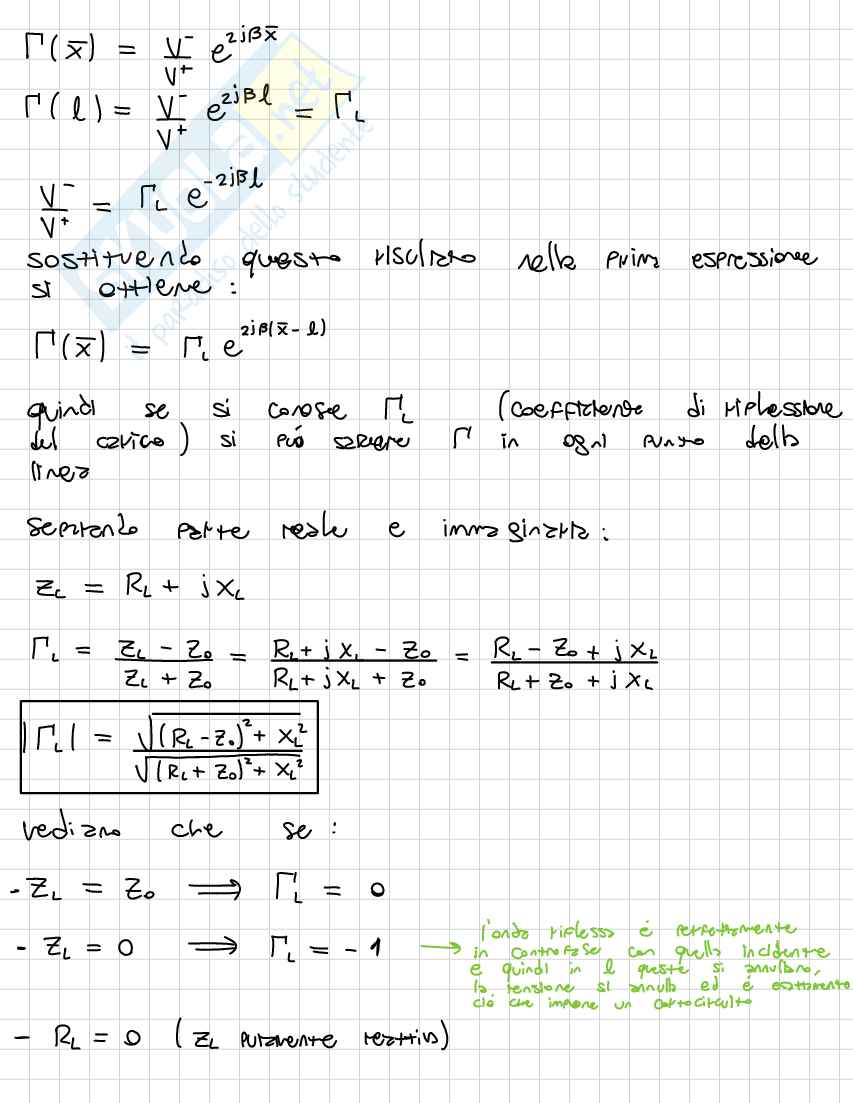 Γ(x̄) = V⁻/V⁺ e^{2jβx̄}
Γ(l) = V⁻/V⁺ e^{2jβl} = Γ_L
V⁻/V⁺ = Γ_L e^{-2jβl}
sostituendo questo risultato nella prima espressione
si ottiene :
Γ(x̄) = Γ_L e^{2jβ(x̄ - l)}
quindi se si conosce Γ_L (coefficiente di riflessione
del carico) si può sapere Γ in ogni punto della
linea
separando parte reale e immaginaria :
Z_L = R_L + j X_L
Γ_L = (Z_L - Z_0)/(Z_L + Z_0) = (R_L + j X_L - Z_0)/(R_L + j X_L + Z_0) = (R_L - Z_0 + j X_L)/(R_L + Z_0 + j X_L)
|Γ_L| = √((R_L - Z_0)² + X_L²)/√((R_L + Z_0)² + X_L²)
vediamo che se :
- Z_L = Z_0 ⟹ Γ_L = 0
- Z_L = 0 ⟹ Γ_L = - 1 → l'onda riflessa è perfettamente
in controfase con quella incidente
e quindi in l queste si annullano,
la tensione si annulla ed è esattamente
ciò che impone un cortocircuito
- R_L = 0 (Z_L puramente reattivo)
SKUOLA.net
il paradiso dello studente